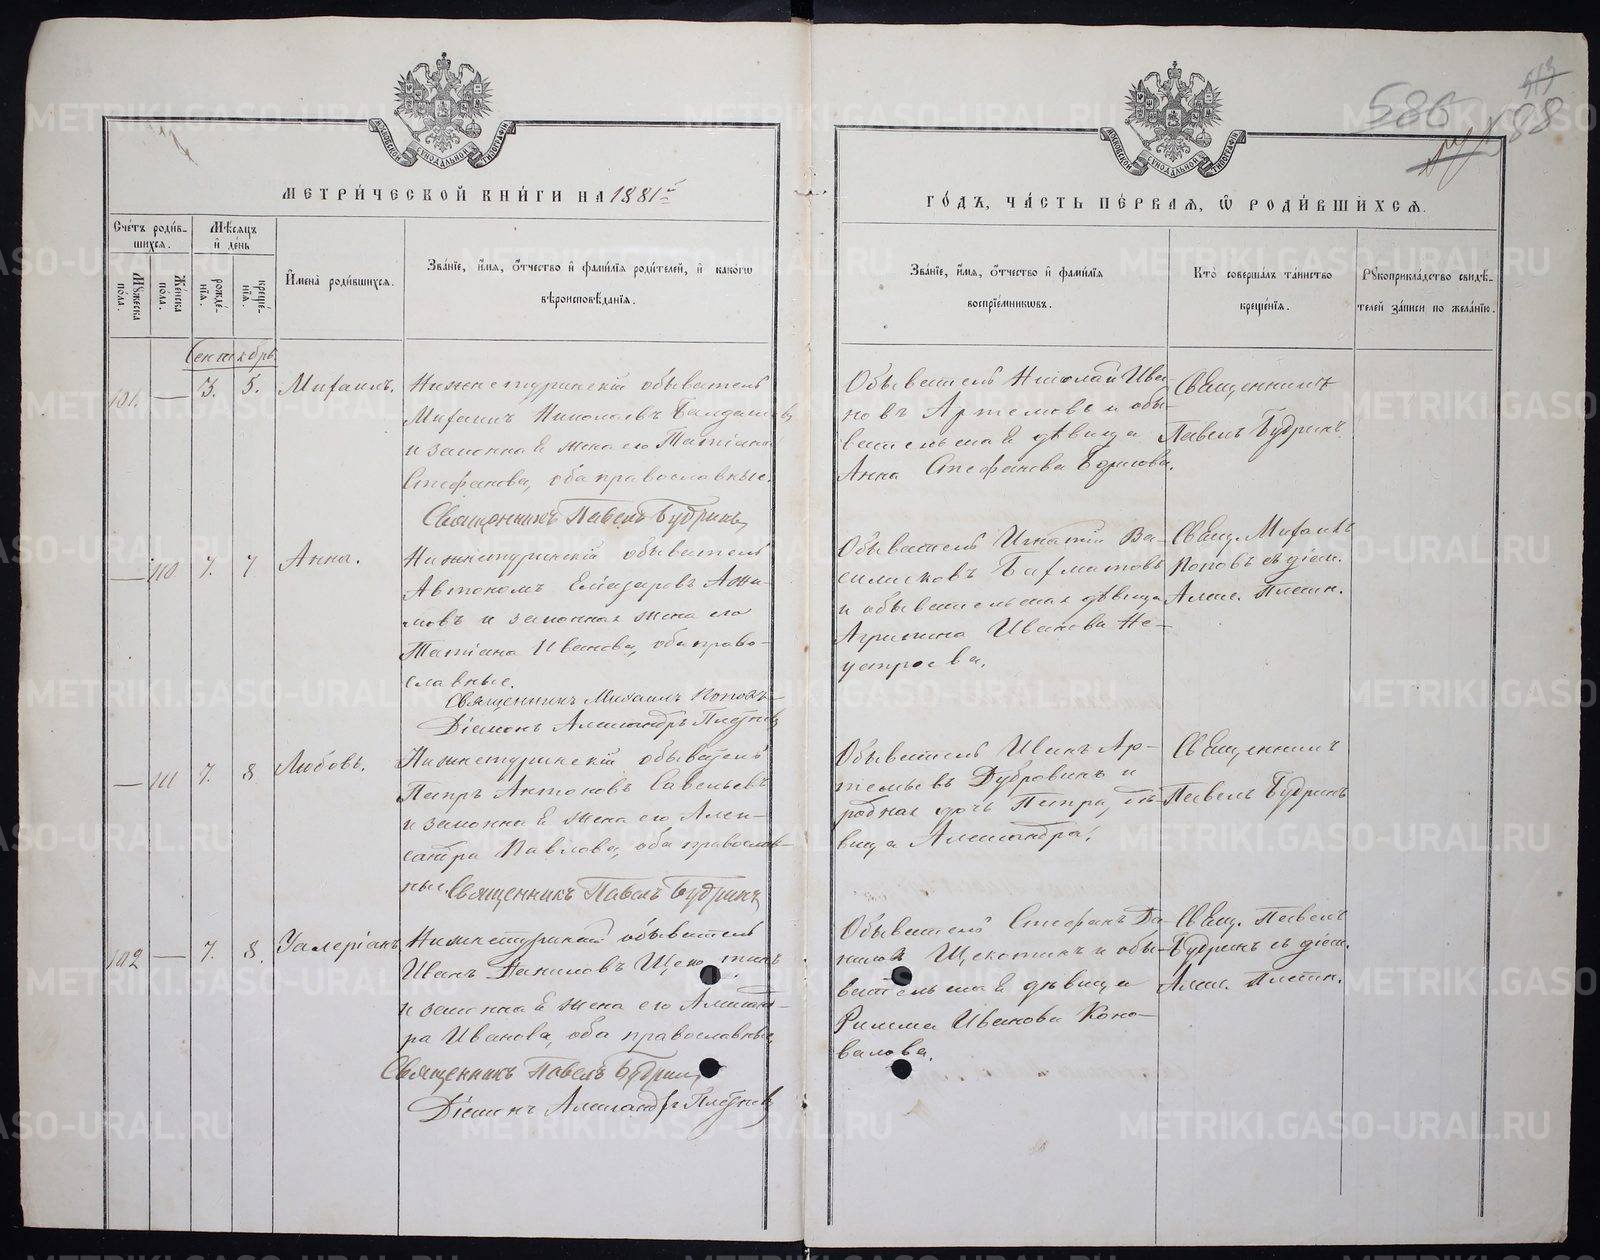 586
513
88
МОСКОВСКОЙ СУНОДАЛЬНОЙ ТИПОГРАФІИ
МОСКОВСКОЙ СУНОДАЛЬНОЙ ТИПОГРАФІИ
МЕТРИ́ЧЕСКОЙ КНИ́ГИ НА 1881 й
ГО́ДЪ, ЧА́СТЬ ПЕ́РВАЯ, Ѽ РОДИ́ВШИХСЯ.
Сче́тъ роди́в-
шихся.
Мѣ́сяцъ
и҆ де́нь
Мꙋ́жеска
по́ла.
Же́нска
по́ла.
рожде́-
нїѧ.
креще́-
нїѧ.
И҆мена̀ роди́вшихся.
Зва́нїе, и҆́мя, ѻ҆́тчество и҆ фами́лїя роди́телей, и҆ како́гѡ
вѣроисповѣ́данїя.
Зва́нїе, и҆́мя, ѻ҆́тчество и҆ фами́лїя
воспрїе́мниковъ.
Кто̀ соверша́лъ та́инство
креще́нїя.
Рꙋкоприкла́дство свидѣ́-
телей за́писи по жела́нїю.
Сентябрь
101. — 3. 5. Михаилъ.
Нижнетуринскій обыватель
Михаилъ Николаевъ
и законная жена его Татіана
Стефанова, оба православные.
Священникъ Павелъ Будринъ
Обыватель Николай Ива-
новъ Артемовъ и обы-
вательская дѣвица
Анна Стефанова
Священникъ
Павелъ Будринъ.
— 110. 7. 7 Анна.
Нижнетуринскій обыватель
Автономъ Елизаровъ
и законная жена его
Татіана Иванова, оба право-
славные.
Священникъ Михаилъ Поповъ
Діаконъ Александръ
Обыватель Игнатій Ва-
силисковъ Бахматовъ
и обывательская дѣвица
Агрипина Иванова Не-
устроева.
Свящ. Михаилъ
Поповъ съ діак.
Алек.
— 111 7. 8 Любовь.
Нижнетуринскій обыватель
Петръ Антоновъ Савельевъ
и законная жена его Алек-
сандра Павлова, оба православ-
ные Священникъ Павелъ Будринъ
Обыватель Иванъ Ар-
темьевъ Дубровинъ и
родная дочь Петра, дѣ-
вица Александра.
Священникъ
Павелъ Будринъ
102 — 7. 8. Уалеріанъ
Нижнетуринскій обыватель
Иванъ Даниловъ Щекотинъ
и законная жена его Александ-
ра Иванова, оба православные
Священникъ Павелъ Будринъ
Діаконъ Александръ
Обыватель Стефанъ Да-
ниловъ Щекотинъ и обы-
вательская дѣвица
Римма Иванова Коно-
валова.
Свящ. Павелъ
Будринъ съ діак.
Алек.
METRIKI.GASO-URAL.RU